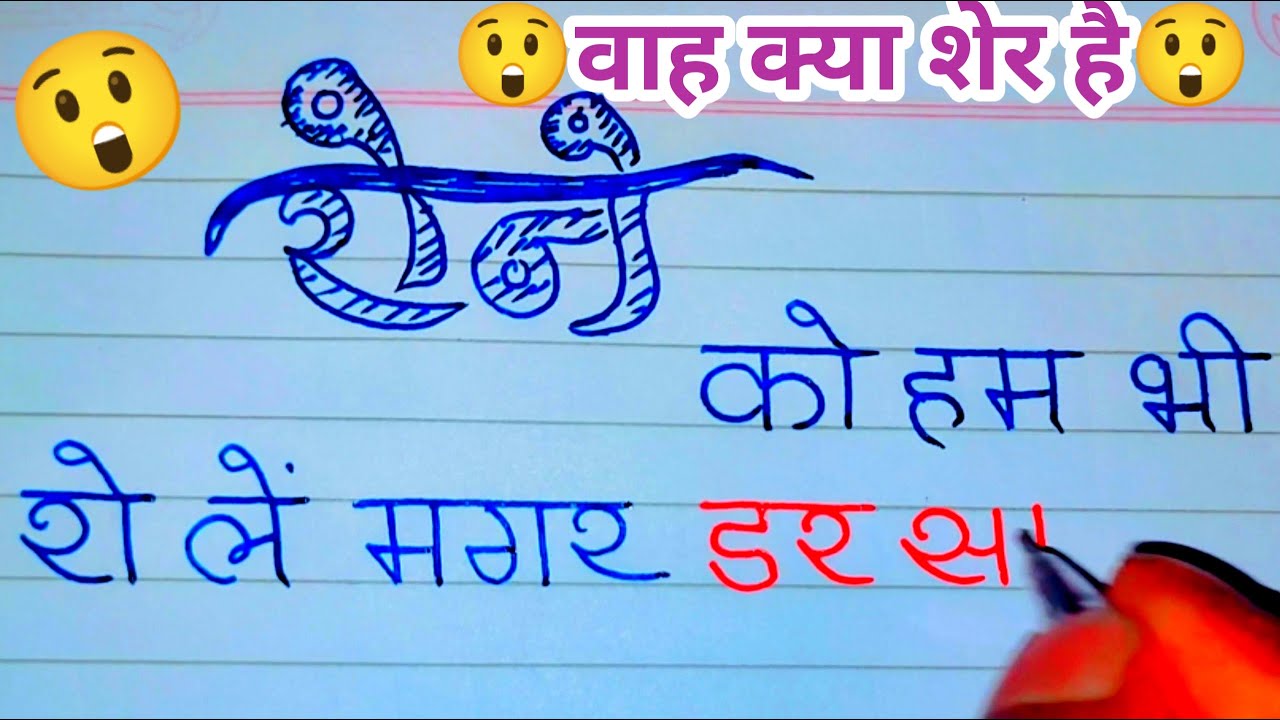 वाह क्या शेर है
रोने
को हम भी
रो लें मगर डर सा